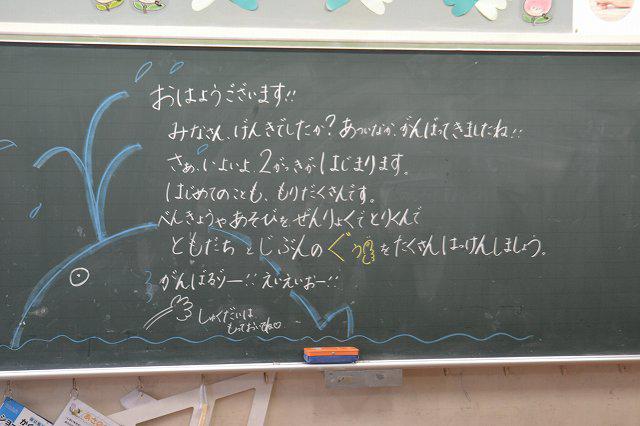 おはようございます!!
みなさん、げんきでしたか?あついなか、がんばってきましたね!!
さぁ、いよいよ、2がっきがはじまります。
はじめてのことも、もりだくさんです。
べんきょうやあそびを、ぜんりょくでとりくんで
ともだちとじぶんのぐっをたくさんはっけんしましょう。
がんばるゾー!!えいえいおー!!
しゅくだいは
もっておいてね♡